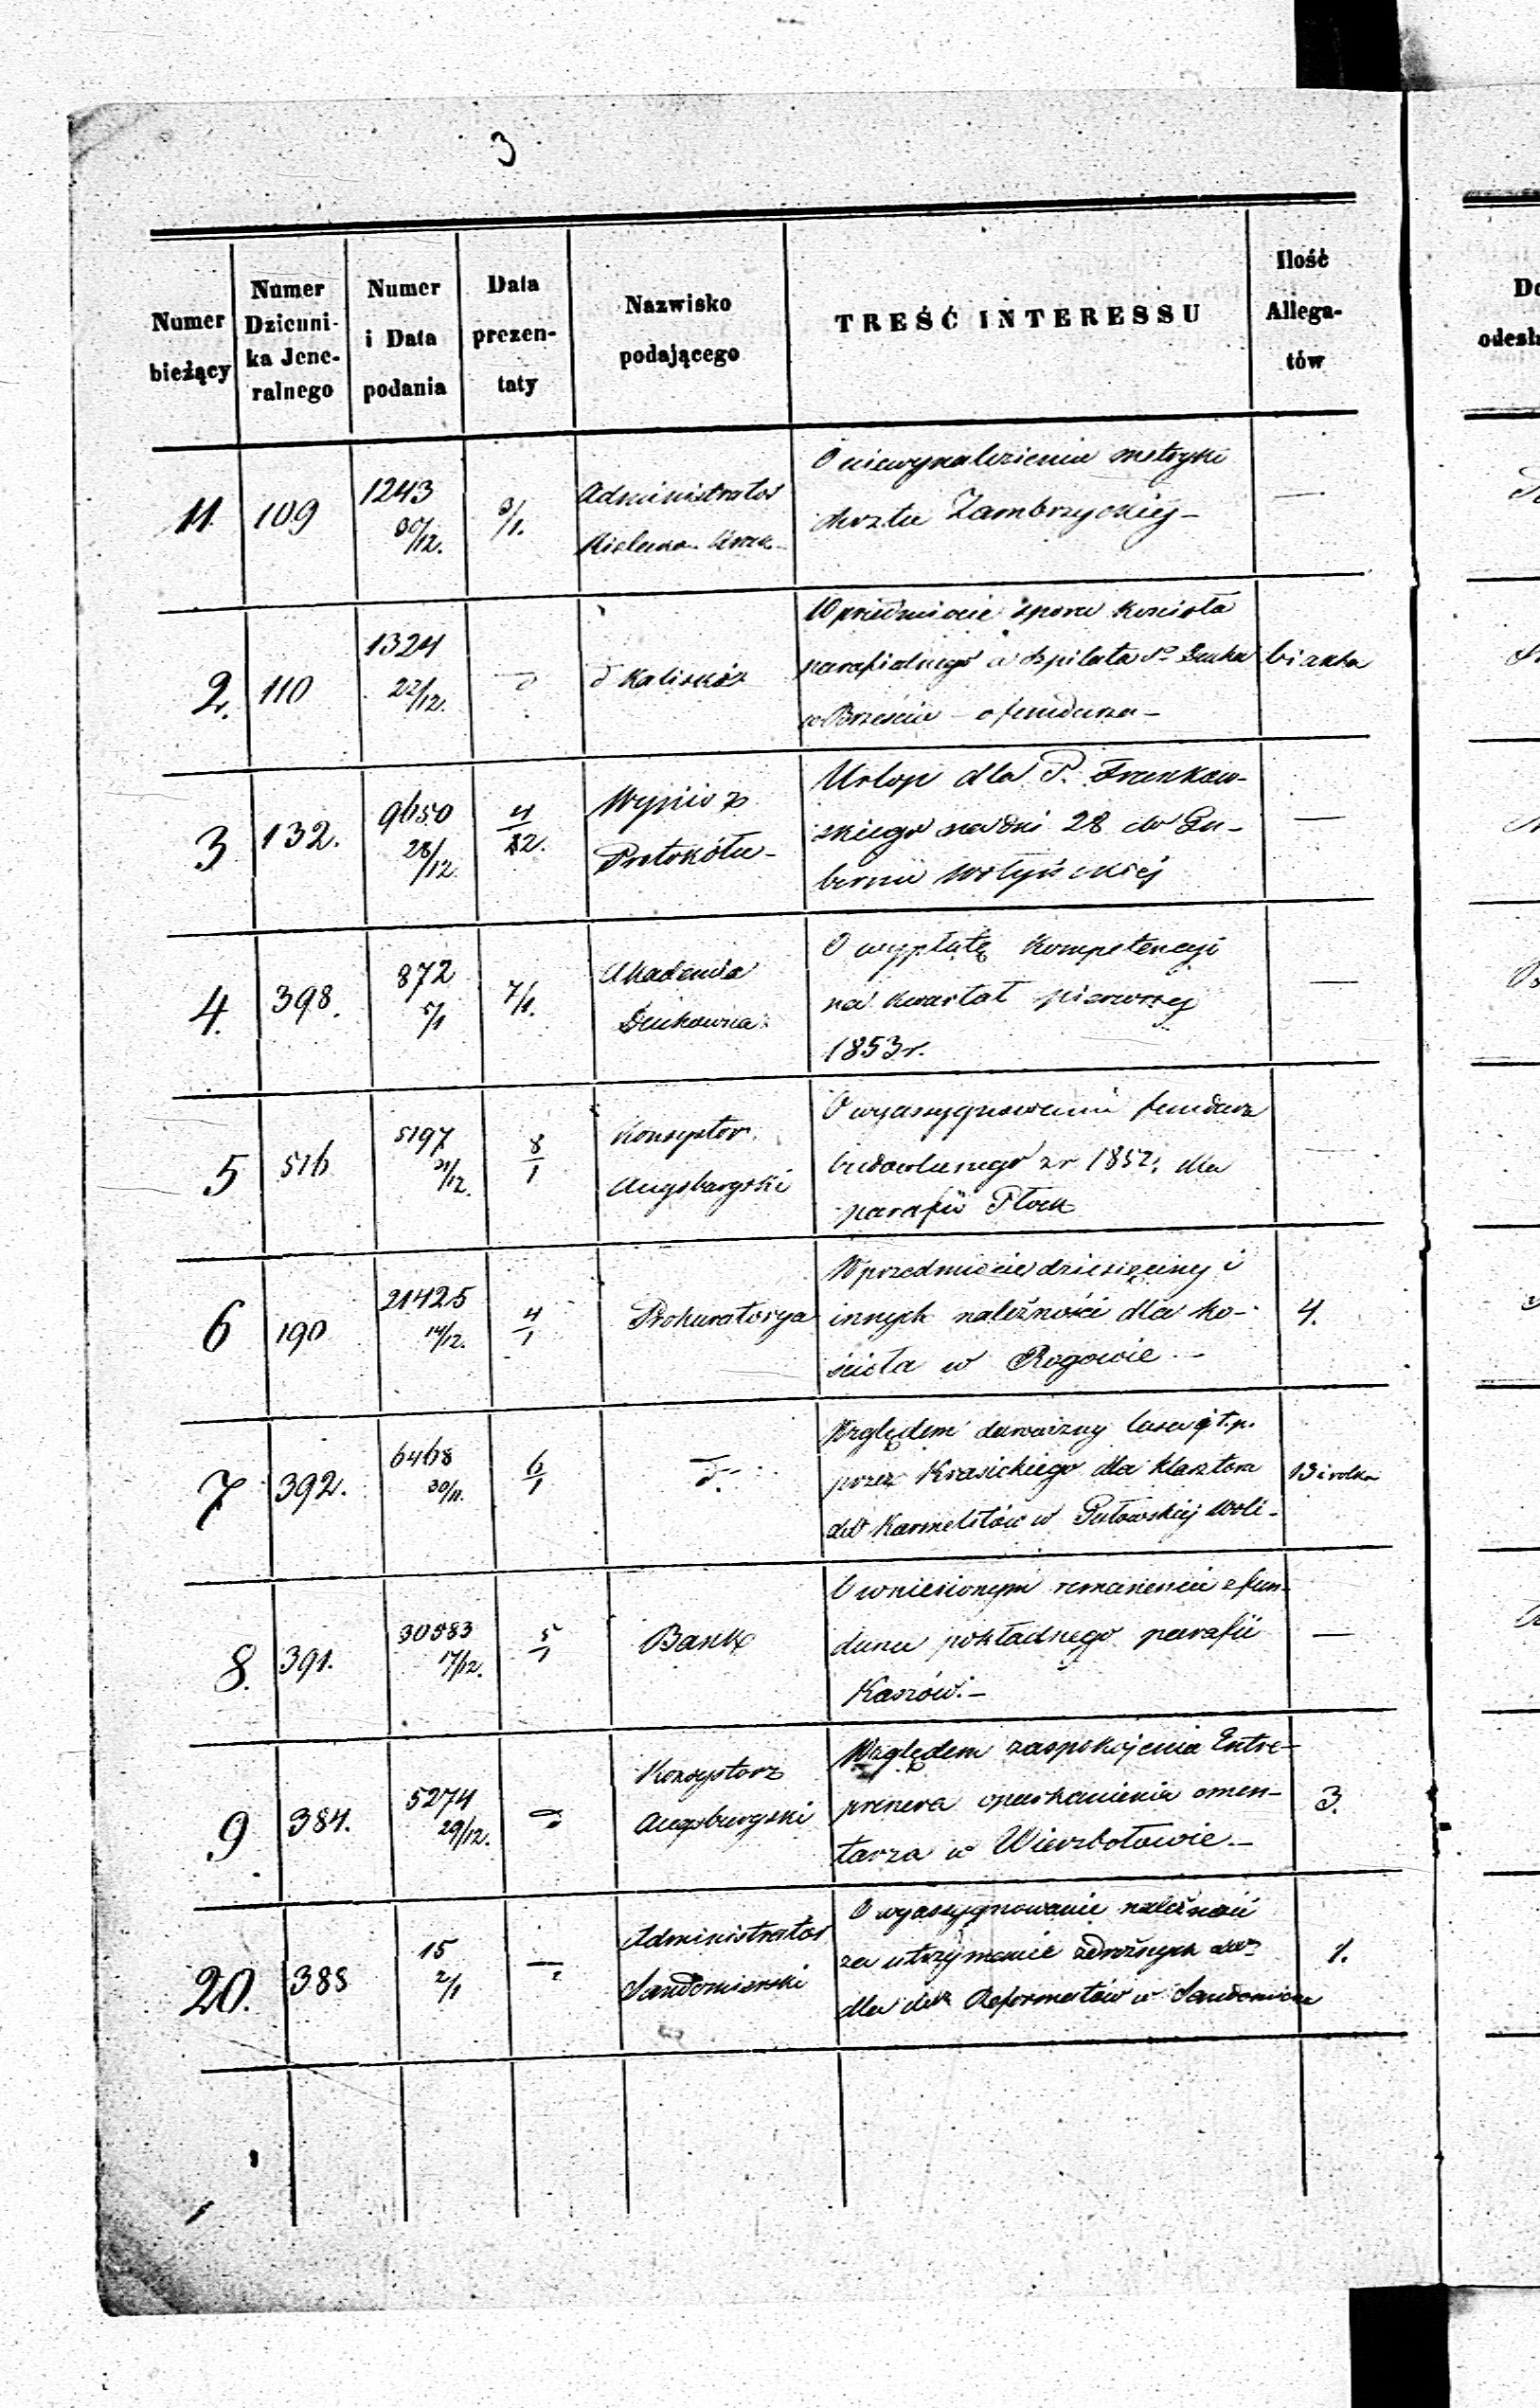 3
Numer bieżący
Numer Dzieuni-
ka Jene-
ralnego
Numer
i Data
podania
Data
prezen-
taty
Nazwisko
podającego
TREŚĆ INTERESSU
Ilość
Allega-
tów
Do
11. 109 1243 30/12. 3/1.
Administrator
O niewynalezieniu metryki
chrztu Zambrzyckiej —
—
2. 110 1324 22/12. d
d Kalisko
W przedmiocie sporu Kościoła
parafialnego a Szpitala Sº Ducha
w Brześciu — o fundusz —
3 132. 9650 28/12. 4/12.
Wypis z
Protokółu —
Urlop dla P. Frankow-
skiego na dni 28 do Gu-
bernii Wołyńskiej
—
4. 398. 872 5/1 7/1.
Akademia
Duchowna
O wypłatę Kompetencyi
na Kwartał pierwszy
1853 r.
—
5 516 5197 31/12. 8/1
Konsystor
Augsburgski
O wyassygnowanie fundusz
budowlanego z r 1852, dla
parafii Płock
6 190 21425 14/12. 4/1
Prokuratorya
W przedmiocie dziesięciny i
innych należności dla Ko-
ścioła w Rogowie —
4.
7 392. 6468 30/11. 6/1
d.
Względem darowizny lasu i t. p.
przez Krasickiego dla Klasztoru
Karmelitów w Woli —
8. 391. 30583 17/12. 5/1
Bank
O wniesionym remanencie z fun-
duszu pokładnego parafii
Kaszów. —
—
9 384. 5274 29/12. d
Konsystorz
Augsburgski
Względem zaspokojenia Entre-
prenera oparkanienia cmen-
tarza w Wierzbołowie. —
3.
20. 385 15 2/1 —
Administrator
Sandomierski
O wyassygnowanie należności
za utrzymanie zdrożnych
dla Reformatów w Sandomierzu
1.